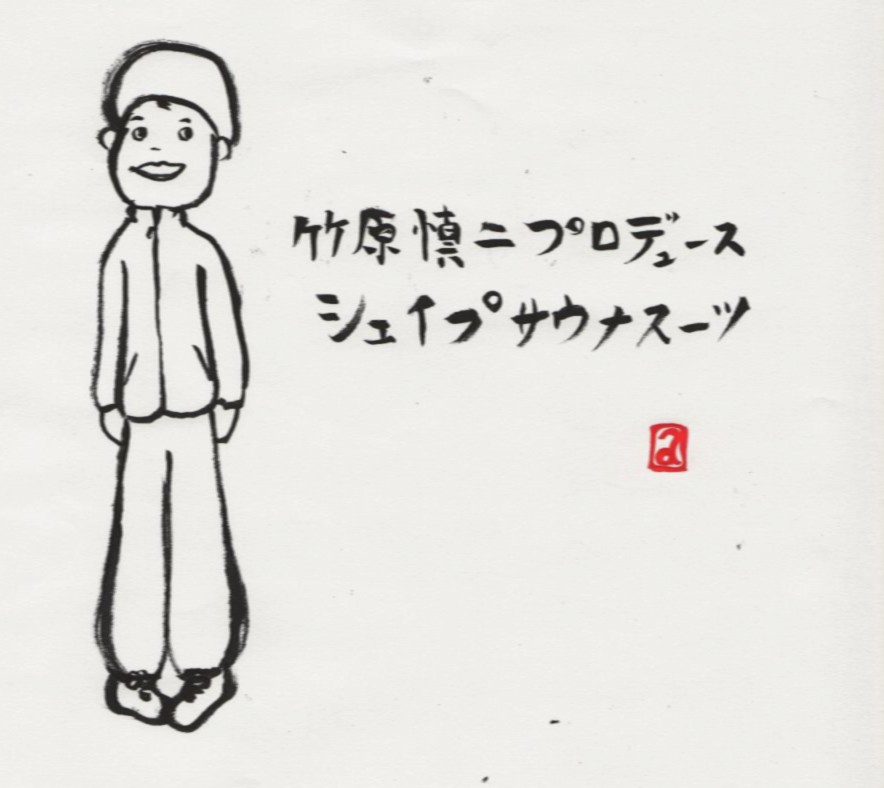 竹原慎二プロデュース
シェイプサウナスーツ